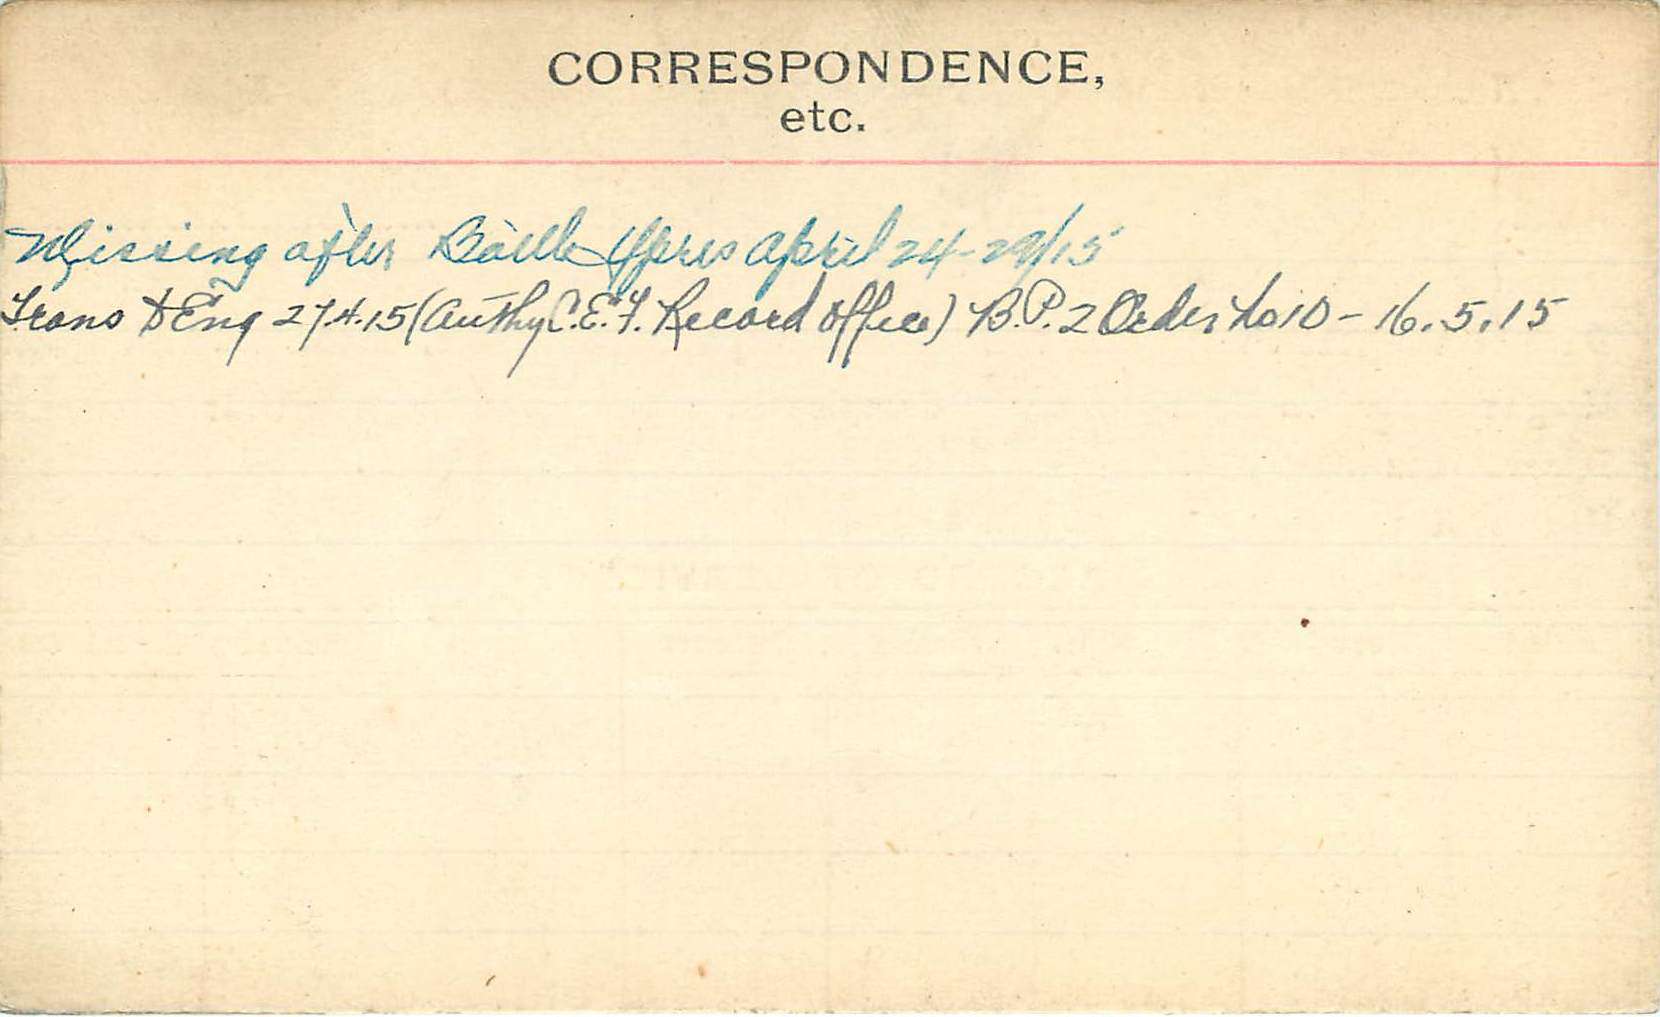 CORRESPONDENCE,
etc.
Missing after Battle Ypres April 24-29/15
Trans to Eng 27.4.15 (Authy C.E.F. Record Office) B.P. 2 Order No 10 - 16.5.15